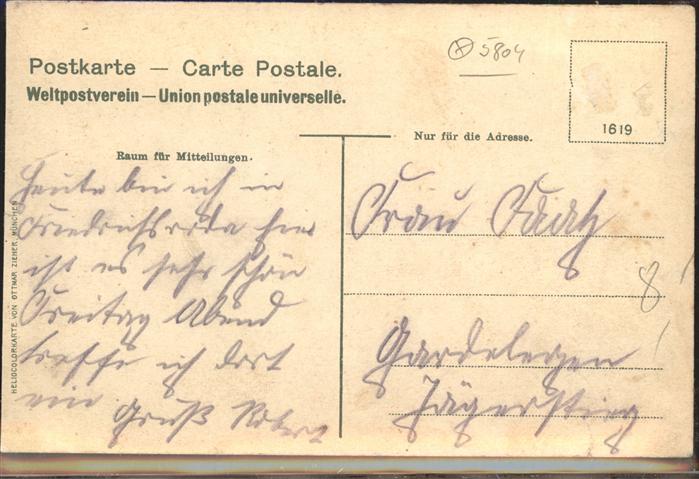 5804
Postkarte — Carte Postale.
Weltpostverein — Union postale universelle.
1619
Nur für die Adresse.
Raum für Mitteilungen.
Heute bin ich in
Friedrichsroda hier
ist es sehr schön
Freitag Abend
treffe ich dort
ein Gruß Robert
Frau
8
Gardelegen
Jägerstieg
HELIOCOLORKARTE VON OTTMAR ZIEHER, MÜNCHEN